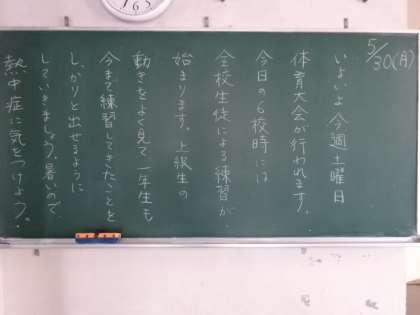 5/30(月)
いよいよ今週土曜日
体育大会が行われます。
今日の6校時には
全校生徒による練習が
始まります。上級生の
動きをよく見て一年生も
今まで練習してきたことを
しっかりと出せるように
していきましょう。暑いので
熱中症に気をつけよう。